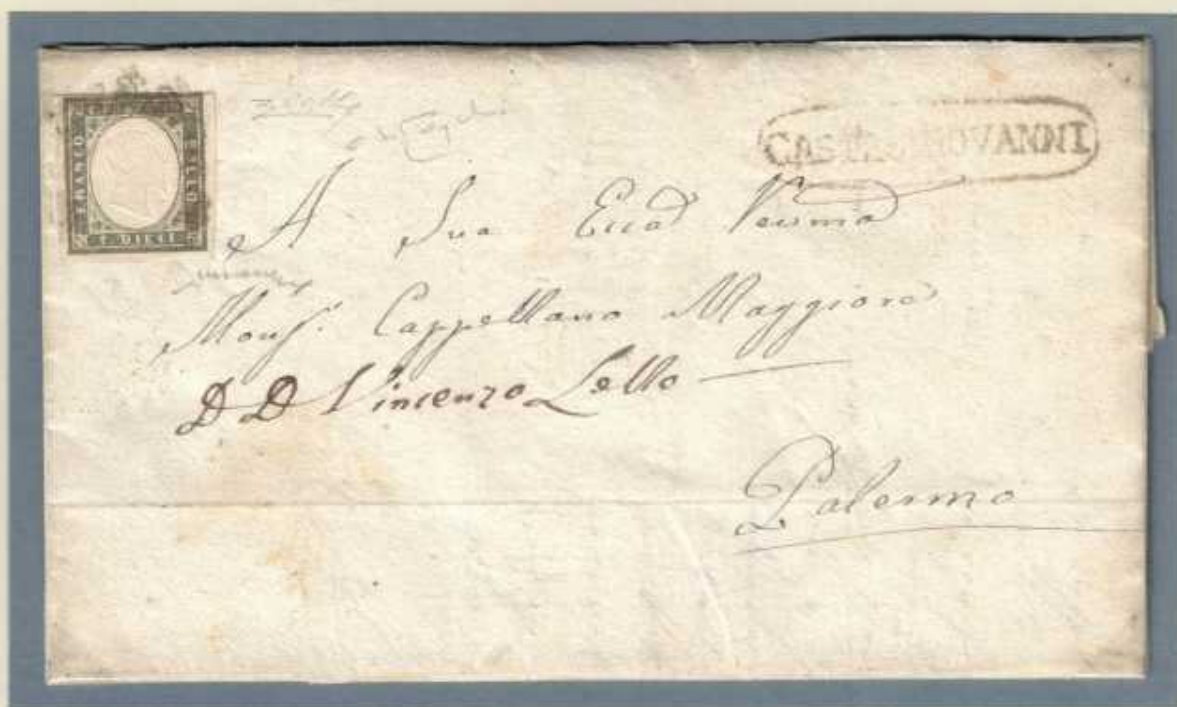 FRANCO
BOLLO
C. DIECI
CASTROGIOVANNI
A Sua Ecca Revma
Monsr. Cappellano Maggiore
D D Vincenzo Lello
Palermo